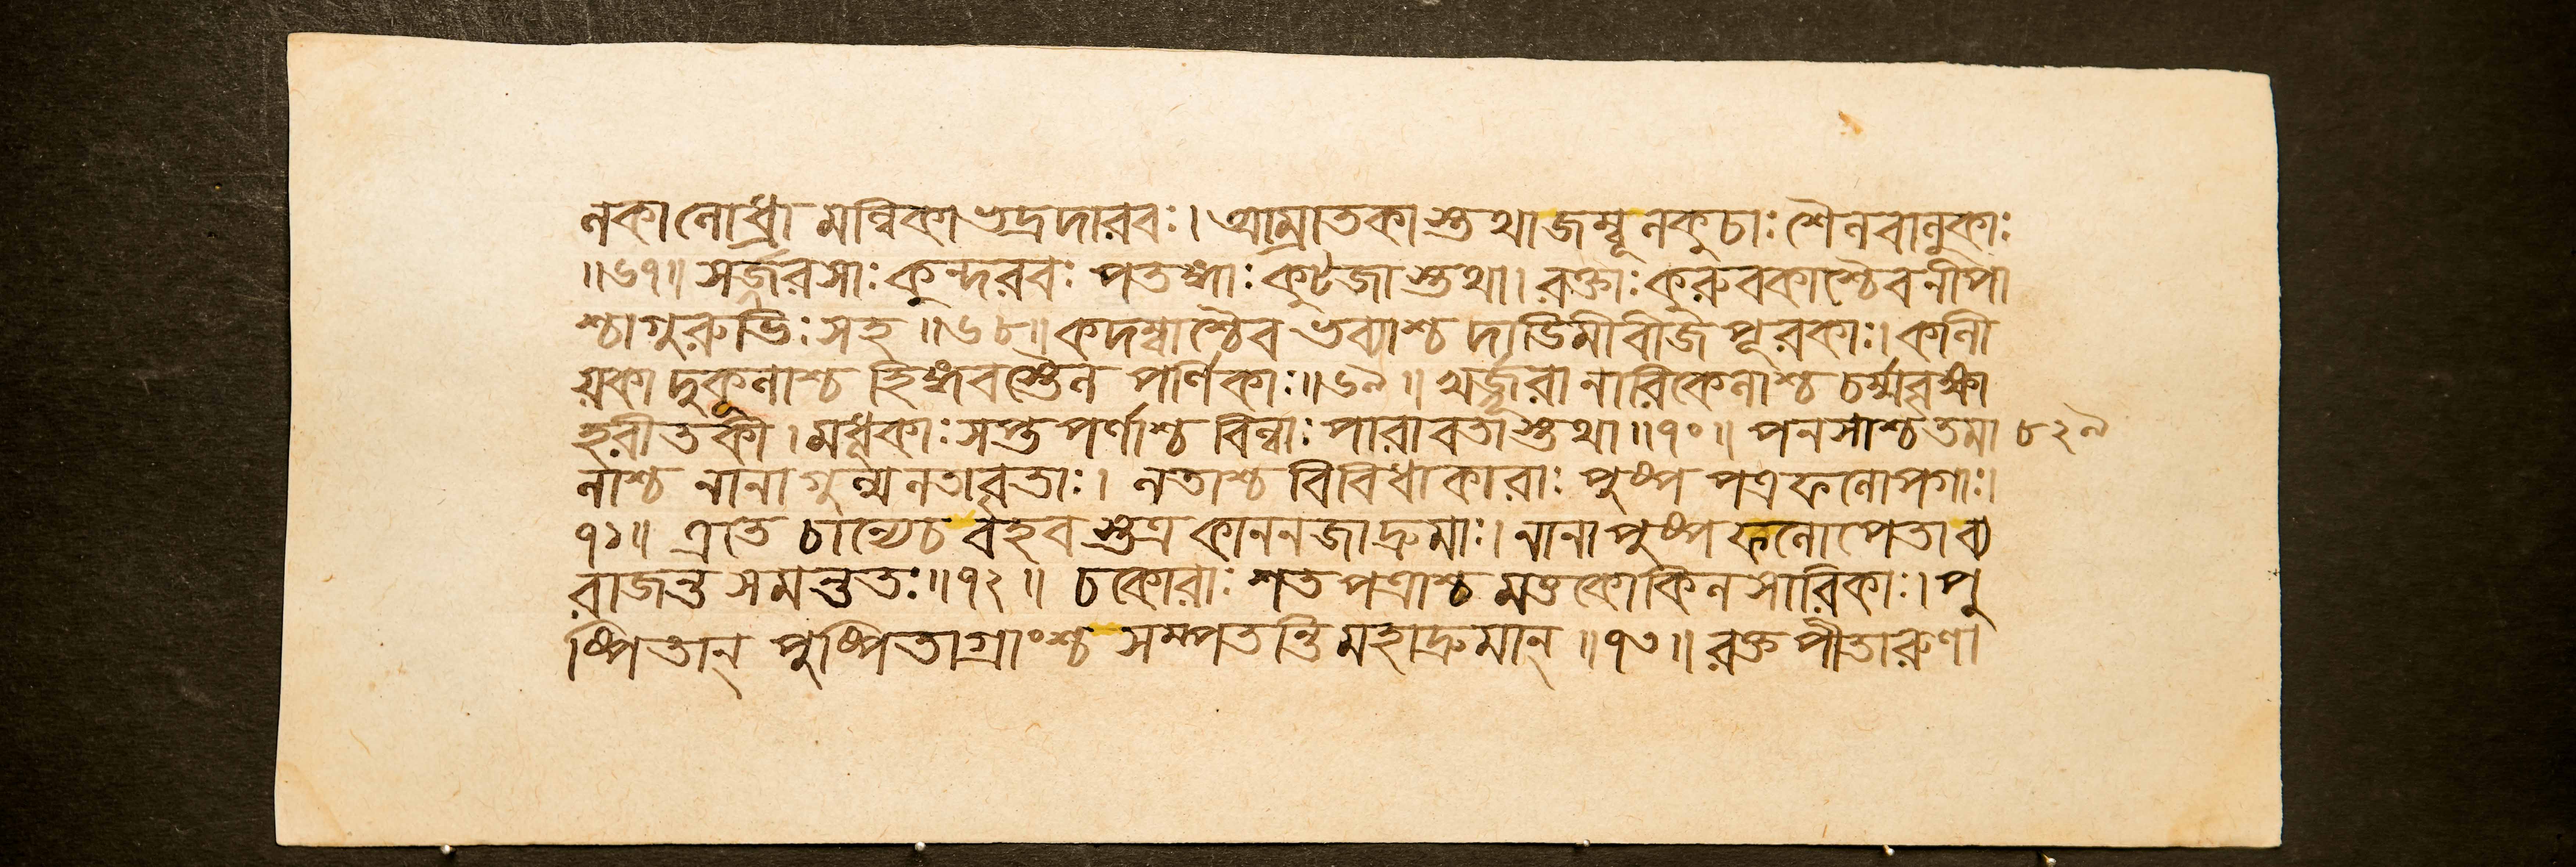 লকালোধ্রা মল্লিকাভদ্রদারবঃ। আম্রাতকাস্তথাজম্বূলকুচাঃ শৈলবালুকাঃ
॥৬৭॥ সর্জরসাঃ কুন্দরবঃ পতঙ্গাঃ কুটজাস্তথা। রক্তাঃ কুরুবকাশ্চৈবনীপা
শ্চাগুরুভিঃ সহ ॥৬৮॥ কদম্বাশ্চৈব ভব্যাশ্চ দাডিমীবীজপূরকাঃ। কালী
য়কা দুকূলাশ্চ হিঙ্গবস্তৈল পর্ণিকাঃ॥৬৯॥ খর্জূরা নারিকেলাশ্চ চর্ম্মবৃক্ষা
হরীতকী। মধূকাঃ সপ্তপর্ণাশ্চ বিল্বাঃ পারাবতাস্তথা॥৭০॥ পনসাশ্চতমা ৮২৯
লাশ্চ নানাগুল্মলতাবৃতাঃ। লতাশ্চ বিবিধাকারাঃ পুষ্প পত্রফলোপগাঃ।
৭১॥ এতে চান্যেচ বহবস্তত্র কাননজাদ্রুমাঃ। নানাপুষ্পফলোপেতা ব্য
রাজন্ত সমন্ততঃ॥৭২॥ চকোরাঃ শতপত্রাশ্চ মত্তকোকিলসারিকাঃ। পু
ষ্পিতান্ পুষ্পিতাগ্রাংশ্চ সম্পতন্তি মহাদ্রুমান্ ॥৭৩॥ রক্তপীতারুণা